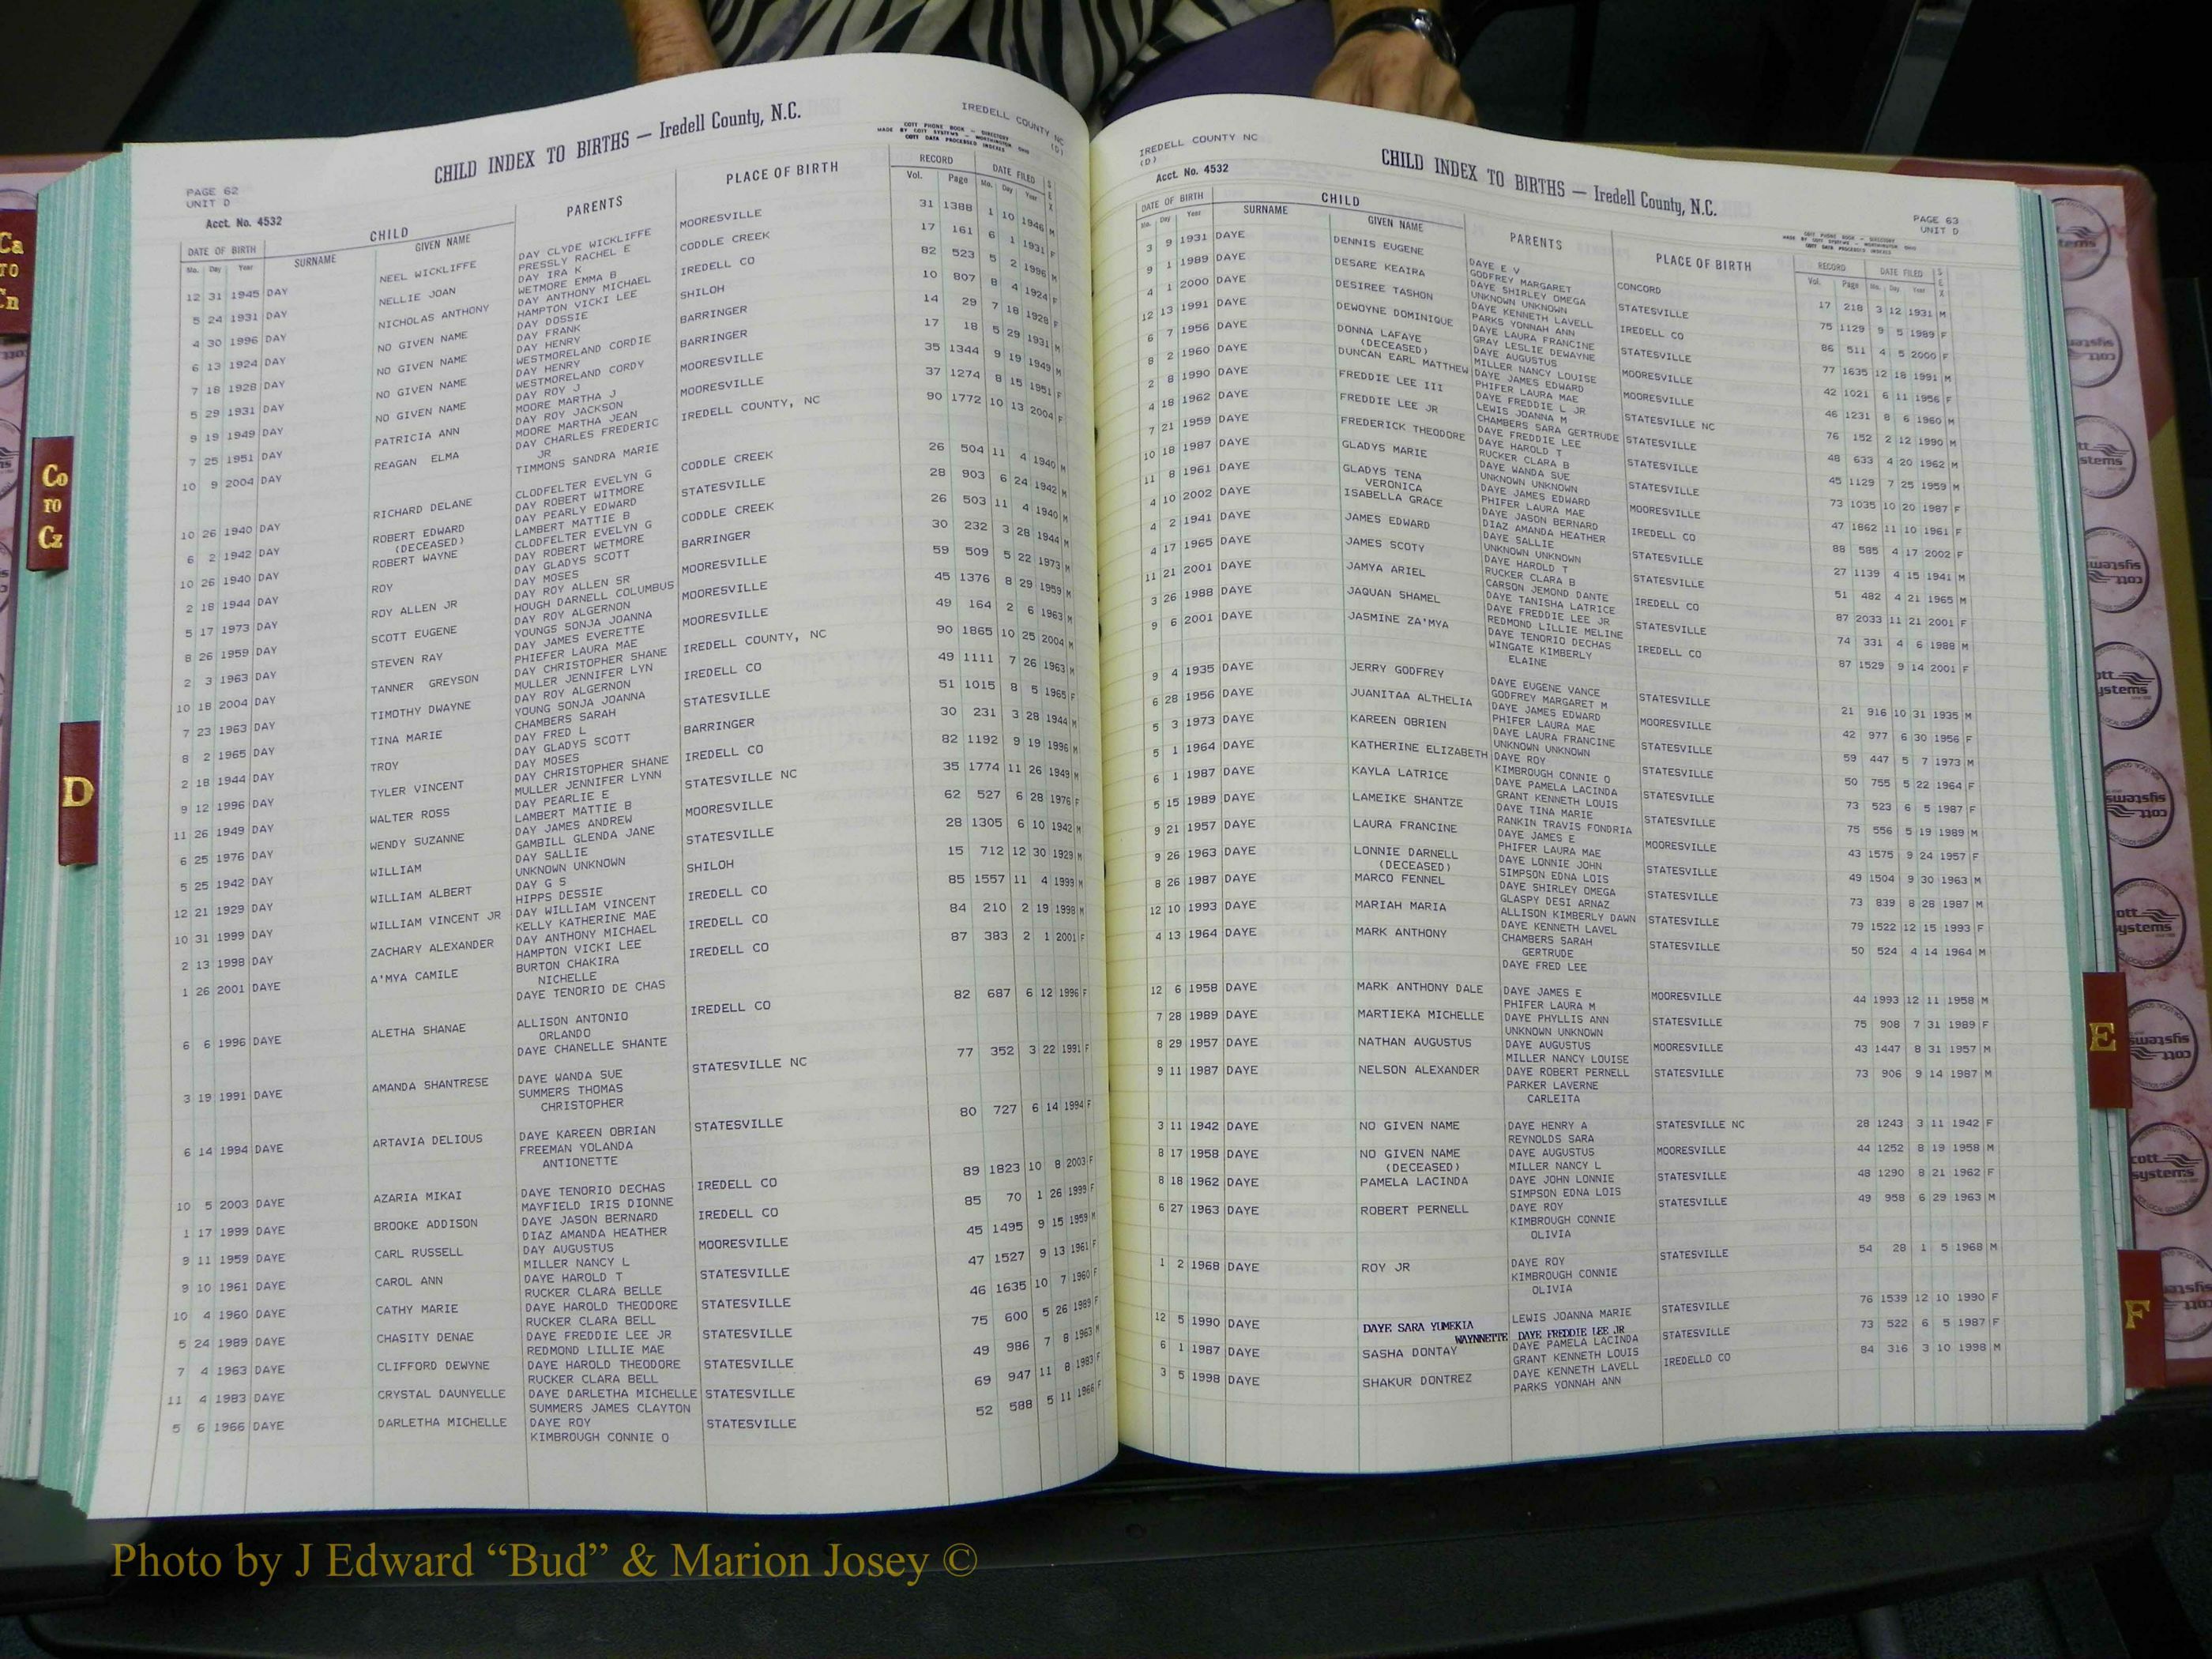 CHILD INDEX TO BIRTHS — Iredell County, N.C.
IREDELL COUNTY NC
(D)
COTT PHONE BOOK — DIRECTORY
MADE BY COTT SYSTEMS — WORTHINGTON OHIO
COTT DATA PROCESSED INDEXES
PAGE 62
UNIT D
Acct. No. 4532
DATE OF BIRTH CHILD PARENTS PLACE OF BIRTH RECORD DATE FILED SEX
Mo. Day Year SURNAME GIVEN NAME Vol. Page Mo. Day Year
12 31 1945 DAY NEEL WICKLIFFE DAY CLYDE WICKLIFFE MOORESVILLE 31 1388 1 10 1946 M
PRESSLY RACHEL E
5 24 1931 DAY NELLIE JOAN DAY IRA K CODDLE CREEK 17 161 6 1 1931 F
WETMORE EMMA B
4 30 1996 DAY NICHOLAS ANTHONY DAY ANTHONY MICHAEL IREDELL CO 82 523 5 2 1996 M
HAMPTON VICKI LEE
6 13 1924 DAY NO GIVEN NAME DAY DOSSIE SHILOH 10 807 8 4 1924 F
DAY FRANK
7 18 1928 DAY NO GIVEN NAME DAY HENRY BARRINGER 14 29 7 18 1928 F
WESTMORELAND CORDIE
5 29 1931 DAY NO GIVEN NAME DAY HENRY BARRINGER 17 18 5 29 1931 M
WESTMORELAND CORDY
9 19 1949 DAY NO GIVEN NAME DAY ROY J MOORESVILLE 35 1344 9 19 1949 M
MOORE MARTHA J
7 25 1951 DAY PATRICIA ANN DAY ROY JACKSON MOORESVILLE 37 1274 8 15 1951 F
MOORE MARTHA JEAN
10 9 2004 DAY REAGAN ELMA DAY CHARLES FREDERIC IREDELL COUNTY, NC 90 1772 10 13 2004 F
JR
TIMMONS SANDRA MARIE
10 26 1940 DAY RICHARD DELANE CLODFELTER EVELYN G CODDLE CREEK 26 504 11 4 1940 M
DAY ROBERT WITMORE
6 2 1942 DAY ROBERT EDWARD DAY PEARLY EDWARD STATESVILLE 28 903 6 24 1942 M
(DECEASED) LAMBERT MATTIE B
10 26 1940 DAY ROBERT WAYNE CLODFELTER EVELYN G CODDLE CREEK 26 503 11 4 1940 M
DAY ROBERT WETMORE
2 18 1944 DAY ROY DAY GLADYS SCOTT BARRINGER 30 232 3 28 1944 M
DAY MOSES
5 17 1973 DAY ROY ALLEN JR DAY ROY ALLEN SR MOORESVILLE 59 509 5 22 1973 M
HOUGH DARNELL COLUMBUS
8 26 1959 DAY SCOTT EUGENE DAY ROY ALGERNON MOORESVILLE 45 1376 8 29 1959 M
YOUNGS SONJA JOANNA
2 3 1963 DAY STEVEN RAY DAY JAMES EVERETTE MOORESVILLE 49 164 2 6 1963 M
PHIEFER LAURA MAE
10 18 2004 DAY TANNER GREYSON DAY CHRISTOPHER SHANE IREDELL COUNTY, NC 90 1865 10 25 2004 M
MULLER JENNIFER LYN
7 23 1963 DAY TIMOTHY DWAYNE DAY ROY ALGERNON IREDELL CO 49 1111 7 26 1963 M
YOUNG SONJA JOANNA
8 2 1965 DAY TINA MARIE CHAMBERS SARAH STATESVILLE 51 1015 8 5 1965 F
DAY FRED L
2 18 1944 DAY TROY DAY GLADYS SCOTT BARRINGER 30 231 3 28 1944 M
DAY MOSES
9 12 1996 DAY TYLER VINCENT DAY CHRISTOPHER SHANE IREDELL CO 82 1192 9 19 1996 M
MULLER JENNIFER LYNN
11 26 1949 DAY WALTER ROSS DAY PEARLIE E STATESVILLE NC 35 1774 11 26 1949 M
LAMBERT MATTIE B
6 25 1976 DAY WENDY SUZANNE DAY JAMES ANDREW MOORESVILLE 62 527 6 28 1976 F
GAMBILL GLENDA JANE
5 25 1942 DAY WILLIAM DAY SALLIE STATESVILLE 28 1305 6 10 1942 M
UNKNOWN UNKNOWN
12 21 1929 DAY WILLIAM ALBERT DAY G S SHILOH 15 712 12 30 1929 M
HIPPS DESSIE
10 31 1999 DAY WILLIAM VINCENT JR DAY WILLIAM VINCENT IREDELL CO 85 1557 11 4 1999 M
KELLY KATHERINE MAE
2 13 1998 DAY ZACHARY ALEXANDER DAY ANTHONY MICHAEL IREDELL CO 84 210 2 19 1998 M
HAMPTON VICKI LEE
1 26 2001 DAYE A'MYA CAMILE BURTON CHAKIRA IREDELL CO 87 383 2 1 2001 F
NICHELLE
DAYE TENORIO DE CHAS
6 6 1996 DAYE ALETHA SHANAE ALLISON ANTONIO IREDELL CO 82 687 6 12 1996 F
ORLANDO
DAYE CHANELLE SHANTE
3 19 1991 DAYE AMANDA SHANTRESE DAYE WANDA SUE STATESVILLE NC 77 352 3 22 1991 F
SUMMERS THOMAS
CHRISTOPHER
6 14 1994 DAYE ARTAVIA DELIOUS DAYE KAREEN OBRIAN STATESVILLE 80 727 6 14 1994 F
FREEMAN YOLANDA
ANTIONETTE
10 5 2003 DAYE AZARIA MIKAI DAYE TENORIO DECHAS IREDELL CO 89 1823 10 8 2003 F
MAYFIELD IRIS DIONNE
1 17 1999 DAYE BROOKE ADDISON DAYE JASON BERNARD IREDELL CO 85 70 1 26 1999 F
DIAZ AMANDA HEATHER
9 11 1959 DAYE CARL RUSSELL DAY AUGUSTUS MOORESVILLE 45 1495 9 15 1959 M
MILLER NANCY L
9 10 1961 DAYE CAROL ANN DAYE HAROLD T STATESVILLE 47 1527 9 13 1961 F
RUCKER CLARA BELLE
10 4 1960 DAYE CATHY MARIE DAYE HAROLD THEODORE STATESVILLE 46 1635 10 7 1960 F
RUCKER CLARA BELL
5 24 1989 DAYE CHASITY DENAE DAYE FREDDIE LEE JR STATESVILLE 75 600 5 26 1989 F
REDMOND LILLIE MAE
7 4 1963 DAYE CLIFFORD DEWYNE DAYE HAROLD THEODORE STATESVILLE 49 986 7 8 1963 M
RUCKER CLARA BELL
11 4 1983 DAYE CRYSTAL DAUNYELLE DAYE DARLETHA MICHELLE STATESVILLE 69 947 11 8 1983 F
SUMMERS JAMES CLAYTON
5 6 1966 DAYE DARLETHA MICHELLE DAYE ROY STATESVILLE 52 588 5 11 1966 F
KIMBROUGH CONNIE O
IREDELL COUNTY NC
(D)
Acct. No. 4532
CHILD INDEX TO BIRTHS — Iredell County, N.C.
PAGE 63
UNIT D
COTT PHONE BOOK — DIRECTORY
MADE BY COTT SYSTEMS — WORTHINGTON OHIO
COTT DATA PROCESSED INDEXES
DATE OF BIRTH CHILD PARENTS PLACE OF BIRTH RECORD DATE FILED SEX
Mo. Day Year SURNAME GIVEN NAME Vol. Page Mo. Day Year
3 9 1931 DAYE DENNIS EUGENE DAYE E V CONCORD 17 218 3 12 1931 M
GODFREY MARGARET
9 1 1989 DAYE DESARE KEAIRA DAYE SHIRLEY OMEGA STATESVILLE 75 1129 9 5 1989 F
UNKNOWN UNKNOWN
4 1 2000 DAYE DESIREE TASHON DAYE KENNETH LAVELL IREDELL CO 86 511 4 5 2000 F
PARKS YONNAH ANN
12 13 1991 DAYE DEWOYNE DOMINIQUE DAYE LAURA FRANCINE STATESVILLE 77 1635 12 18 1991 M
GRAY LESLIE DEWAYNE
6 7 1956 DAYE DONNA LAFAYE DAYE AUGUSTUS MOORESVILLE 42 1021 6 11 1956 F
(DECEASED) MILLER NANCY LOUISE
8 2 1960 DAYE DUNCAN EARL MATTHEW DAYE JAMES EDWARD MOORESVILLE 46 1231 8 6 1960 M
PHIFER LAURA MAE
2 8 1990 DAYE FREDDIE LEE III DAYE FREDDIE L JR STATESVILLE NC 76 152 2 12 1990 M
LEWIS JOANNA M
4 18 1962 DAYE FREDDIE LEE JR CHAMBERS SARA GERTRUDE STATESVILLE 48 633 4 20 1962 M
DAYE FREDDIE LEE
7 21 1959 DAYE FREDERICK THEODORE DAYE HAROLD T STATESVILLE 45 1129 7 25 1959 M
RUCKER CLARA B
10 18 1987 DAYE GLADYS MARIE DAYE WANDA SUE STATESVILLE 73 1035 10 20 1987 F
UNKNOWN UNKNOWN
11 8 1961 DAYE GLADYS TENA DAYE JAMES EDWARD MOORESVILLE 47 1862 11 10 1961 F
VERONICA PHIFER LAURA MAE
4 10 2002 DAYE ISABELLA GRACE DAYE JASON BERNARD IREDELL CO 88 585 4 17 2002 F
DIAZ AMANDA HEATHER
4 2 1941 DAYE JAMES EDWARD DAYE SALLIE STATESVILLE 27 1139 4 15 1941 M
UNKNOWN UNKNOWN
4 17 1965 DAYE JAMES SCOTY DAYE HAROLD T STATESVILLE 51 482 4 21 1965 M
RUCKER CLARA B
11 21 2001 DAYE JAMYA ARIEL CARSON JEMOND DANTE IREDELL CO 87 2033 11 21 2001 F
DAYE TANISHA LATRICE
3 26 1988 DAYE JAQUAN SHAMEL DAYE FREDDIE LEE JR STATESVILLE 74 331 4 6 1988 M
REDMOND LILLIE MELINE
9 6 2001 DAYE JASMINE ZA'MYA DAYE TENORIO DECHAS IREDELL CO 87 1529 9 14 2001 F
WINGATE KIMBERLY
ELAINE
9 4 1935 DAYE JERRY GODFREY DAYE EUGENE VANCE STATESVILLE 21 916 10 31 1935 M
GODFREY MARGARET M
6 28 1956 DAYE JUANITAA ALTHELIA DAYE JAMES EDWARD MOORESVILLE 42 977 6 30 1956 F
PHIFER LAURA MAE
5 3 1973 DAYE KAREEN OBRIEN DAYE LAURA FRANCINE STATESVILLE 59 447 5 7 1973 M
UNKNOWN UNKNOWN
5 1 1964 DAYE KATHERINE ELIZABETH DAYE ROY STATESVILLE 50 755 5 22 1964 F
KIMBROUGH CONNIE O
6 1 1987 DAYE KAYLA LATRICE DAYE PAMELA LACINDA STATESVILLE 73 523 6 5 1987 F
GRANT KENNETH LOUIS
5 15 1989 DAYE LAMEIKE SHANTZE DAYE TINA MARIE STATESVILLE 75 556 5 19 1989 M
RANKIN TRAVIS FONDRIA
9 21 1957 DAYE LAURA FRANCINE DAYE JAMES E MOORESVILLE 43 1575 9 24 1957 F
PHIFER LAURA MAE
9 26 1963 DAYE LONNIE DARNELL DAYE LONNIE JOHN STATESVILLE 49 1504 9 30 1963 M
(DECEASED) SIMPSON EDNA LOIS
8 26 1987 DAYE MARCO FENNEL DAYE SHIRLEY OMEGA STATESVILLE 73 839 8 28 1987 M
GLASPY DESI ARNAZ
12 10 1993 DAYE MARIAH MARIA ALLISON KIMBERLY DAWN STATESVILLE 79 1522 12 15 1993 F
DAYE KENNETH LAVEL
4 13 1964 DAYE MARK ANTHONY CHAMBERS SARAH STATESVILLE 50 524 4 14 1964 M
GERTRUDE
DAYE FRED LEE
12 6 1958 DAYE MARK ANTHONY DALE DAYE JAMES E MOORESVILLE 44 1993 12 11 1958 M
PHIFER LAURA M
7 28 1989 DAYE MARTIEKA MICHELLE DAYE PHYLLIS ANN STATESVILLE 75 908 7 31 1989 F
UNKNOWN UNKNOWN
8 29 1957 DAYE NATHAN AUGUSTUS DAYE AUGUSTUS MOORESVILLE 43 1447 8 31 1957 M
MILLER NANCY LOUISE
9 11 1987 DAYE NELSON ALEXANDER DAYE ROBERT PERNELL STATESVILLE 73 906 9 14 1987 M
PARKER LAVERNE
CARLEITA
3 11 1942 DAYE NO GIVEN NAME DAYE HENRY A STATESVILLE NC 28 1243 3 11 1942 F
REYNOLDS SARA
8 17 1958 DAYE NO GIVEN NAME DAYE AUGUSTUS MOORESVILLE 44 1252 8 19 1958 M
(DECEASED) MILLER NANCY L
8 18 1962 DAYE PAMELA LACINDA DAYE JOHN LONNIE STATESVILLE 48 1290 8 21 1962 F
SIMPSON EDNA LOIS
6 27 1963 DAYE ROBERT PERNELL DAYE ROY STATESVILLE 49 958 6 29 1963 M
KIMBROUGH CONNIE
OLIVIA
1 2 1968 DAYE ROY JR DAYE ROY STATESVILLE 54 28 1 5 1968 M
KIMBROUGH CONNIE
OLIVIA
12 5 1990 DAYE DAYE SARA YUMEKIA LEWIS JOANNA MARIE STATESVILLE 76 1539 12 10 1990 F
WAYNNETTE DAYE FREDDIE LEE JR
6 1 1987 DAYE SASHA DONTAY DAYE PAMELA LACINDA STATESVILLE 73 522 6 5 1987 F
GRANT KENNETH LOUIS
3 5 1998 DAYE SHAKUR DONTREZ DAYE KENNETH LAVELL IREDELLO CO 84 316 3 10 1998 M
PARKS YONNAH ANN
Ca
TO
Cn
Co
TO
Cz
D
E
F
cott
systems
Photo by J Edward “Bud” & Marion Josey ©